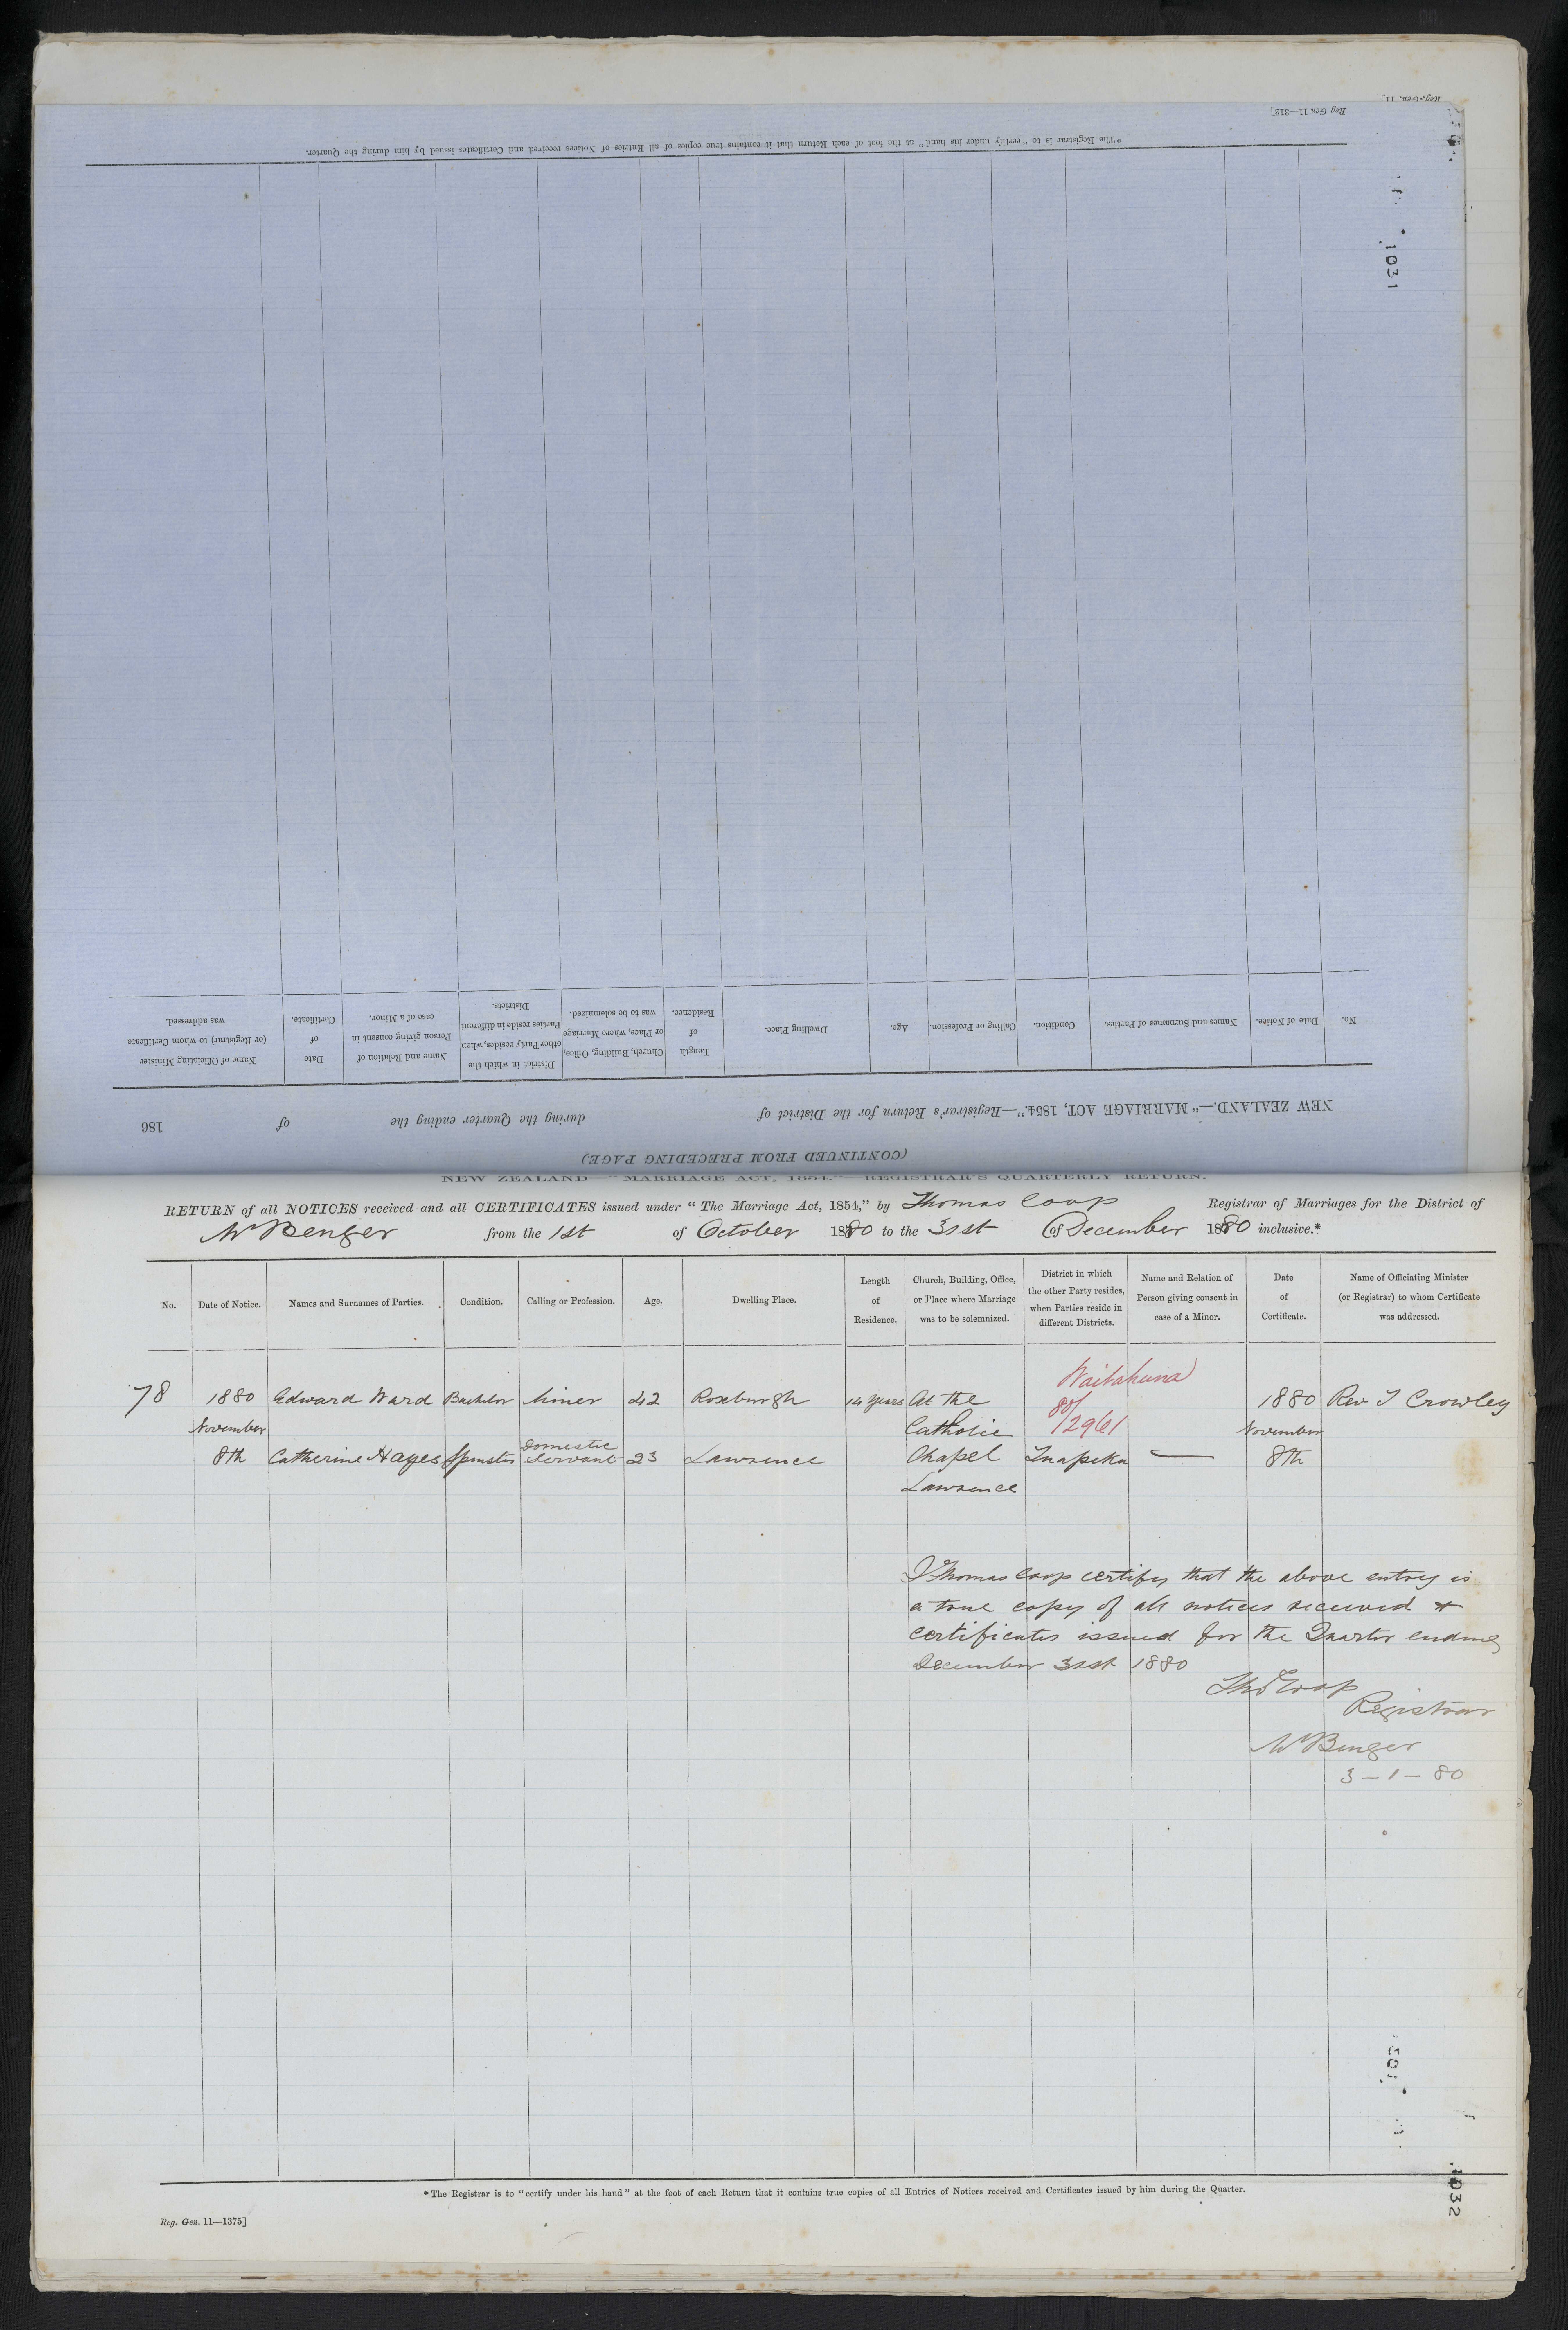 Reg.-Gen. 11]
Reg Gen 11—312]
*The Registrar is to "certify under his hand" at the foot of each Return that it contains true copies of all Entries of Notices received and Certificates issued by him during the Quarter.
1031
No. Date of Notice. Names and Surnames of Parties. Condition. Calling or Profession. Age. Dwelling Place. Length of Residence. Church, Building, Office, or Place, where Marriage was to be solemnized. District in which the other Party resides, when Parties reside in different Districts. Name and Relation of Person giving consent in case of a Minor. Date of Certificate. Name of Officiating Minister (or Registrar) to whom Certificate was addressed.
NEW ZEALAND.—"MARRIAGE ACT, 1854."—Registrar's Return for the District of during the Quarter ending the of 186
(CONTINUED FROM PRECEDING PAGE)
NEW ZEALAND—"MARRIAGE ACT, 1854."—REGISTRAR'S QUARTERLY RETURN.
RETURN of all NOTICES received and all CERTIFICATES issued under "The Marriage Act, 1854," by Thomas Coop Registrar of Marriages for the District of
Mt Benger from the 1st of October 1880 to the 31st of December 1880 inclusive.*
No. Date of Notice. Names and Surnames of Parties. Condition. Calling or Profession. Age. Dwelling Place. Length of Residence. Church, Building, Office, or Place where Marriage was to be solemnized. District in which the other Party resides, when Parties reside in different Districts. Name and Relation of Person giving consent in case of a Minor. Date of Certificate. Name of Officiating Minister (or Registrar) to whom Certificate was addressed.
Waitahuna
78 1880 Edward Ward Bachelor Miner 42 Roxburgh 14 years At the 80/ 1880 Rev J Crowley
November Catholic 12961 November
8th Catherine Hayes Spinster Domestic Servant 23 Lawrence Chapel Tuapeka — 8th
Lawrence
I Thomas Coop certify that the above entry is
a true copy of all notices received &
certificates issued for the Quarter ending
December 31st 1880
Thos Coop
Registrar
Mt Benger
3–1–80
1032
*The Registrar is to "certify under his hand" at the foot of each Return that it contains true copies of all Entries of Notices received and Certificates issued by him during the Quarter.
Reg. Gen. 11—1375]